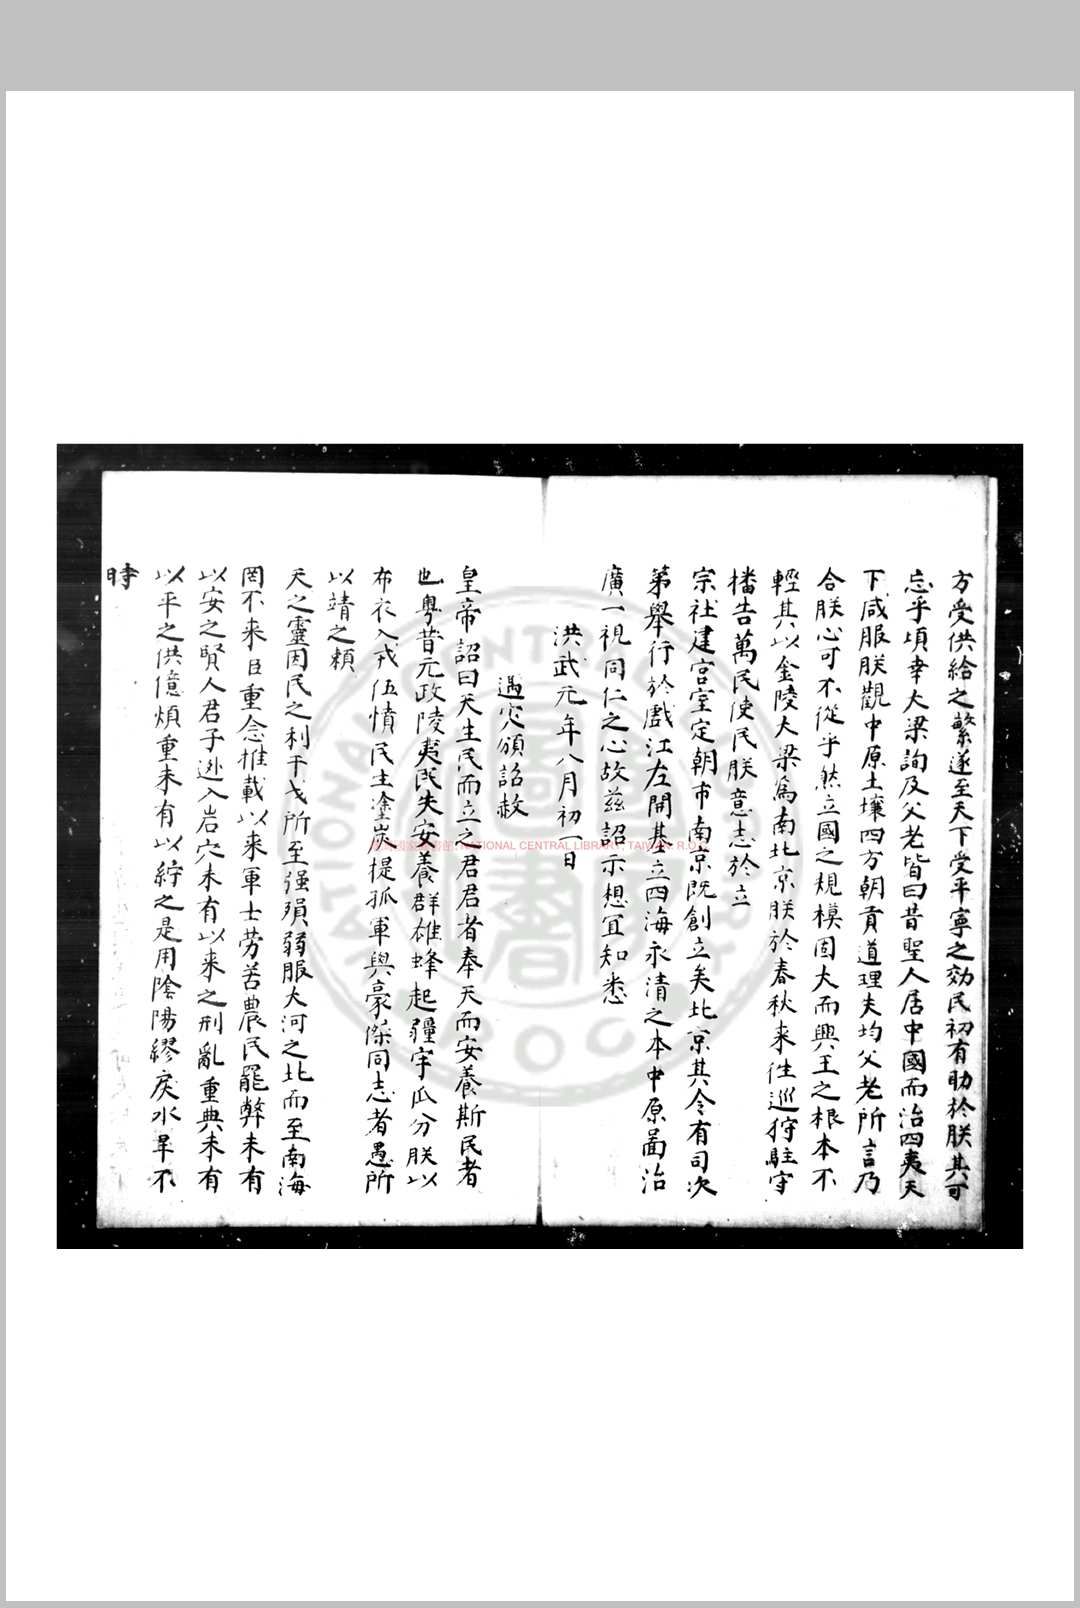 方受供給之繁遂至天下受平寧之効民初有助於朕其可
忘乎頃幸大梁詢及父老皆曰昔聖人居中國而治四夷天
下咸服朕觀中原土壤四方朝貢道理夫均父老所言乃
合朕心可不從乎然立國之規模固大而興王之根本不
輕其以金陵大梁為南北京朕於春秋来徃巡狩駐守
播告萬民使民朕意志於立
宗社建宮室定朝市南京既創立矣北京其令有司次
第舉行於戲江左開基立四海永清之本中原啚治
廣一視同仁之心故兹詔示想宜知悉
洪武元年八月初一日
過灾頒詔赦
皇帝詔曰天生民而立之君君者奉天而安養斯民者
也粤昔元政陵夷民失安養群雄蜂起疆宇瓜分朕以
布衣入戎伍憤民生塗炭提孤軍與豪傑同志者愚所
以靖之頼
天之靈因民之利干戈所至强殞弱服大河之北而至南海
罔不来臣重念惟載以来軍士劳苦農民罷弊未有
以安之賢人君子逊入岩穴未有以来之刑亂重典未有
以平之供億煩重未有以紓之是用陰陽繆戾水旱不
時
NATIONAL CENTRAL LIBRARY, TAIWAN, R.O.C